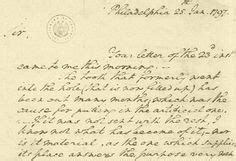 Philadelphia 25th Jan. 1797.
Sir,
Your letter of the 23d inst
came to me this morning.
The hook that formerly went
into the hole, (that is now filled up) has
been out many months, which was the
cause for putting in the artificial one.
If it was not sent with the rest, I
know not what has become of it; nor
is it material, as the one which supplies
its place answers the purpose very